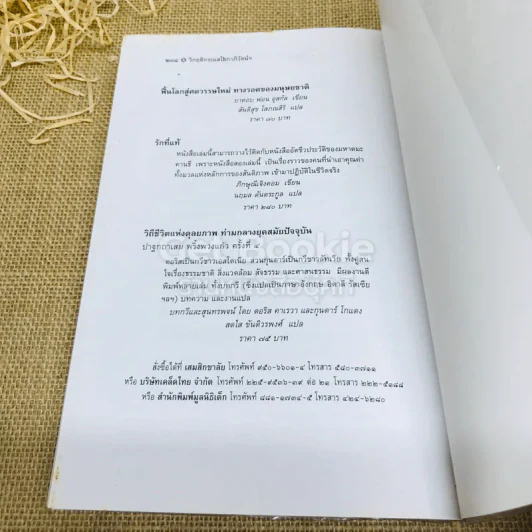 ฟื้นโลกสู่ศตวรรษใหม่ ทางรอดของมนุษยชาติ
ยาคอบ ฟอน อุสกัล เขียน
สันติสุข โสภณสิริ แปล
ราคา ๗๐ บาท
รักที่แท้
หนังสือเล่มนี้สามารถวางไว้ติดกับหนังสืออัตชีวประวัติของมหาตมะ
คานธี เพราะหนังสือสองเล่มนี้ เป็นเรื่องราวของคนที่นำเอาคุณค่า
ทั้งมวลแห่งหลักการของสันติภาพ เข้ามาปฏิบัติในชีวิตจริง
ภิกษุณีเจิงคอม เขียน
นฤมล ตันตระกูล แปล
ราคา ๒๘๐ บาท
วิถีชีวิตแห่งดุลยภาพ ท่ามกลางยุคสมัยปัจจุบัน
ปาฐกถาเสม พริ้งพวงแก้ว ครั้งที่ ๔
ดอริสเป็นกวีชาวเอสโตเนีย ส่วนกุนดาร์เป็นกวีชาวลัทเวีย ทั้งคู่สน
ใจเรื่องธรรมชาติ สิ่งแวดล้อม สัจธรรม และศาสนธรรม มีผลงานตี
พิมพ์หลายเล่ม ทั้งบทกวี (ซึ่งแปลเป็นภาษาอังกฤษ อิตาลี รัสเซีย
ฯลฯ) บทความ และงานแปล
บทกวีและสุนทรพจน์ โดย ดอริส คาเรวา และกุนดาร์ โกแดง
สดใส ขันติวรพงศ์ แปล
ราคา ๗๕ บาท
สั่งซื้อได้ที่ เสมสิกขาลัย โทรศัพท์ ๙๕๐-๖๖๐๑-๔ โทรสาร ๕๘๐-๓๗๑๑
หรือ บริษัทเคล็ดไทย จำกัด โทรศัพท์ ๒๒๕-๙๕๓๖-๓๙ ต่อ ๒๑ โทรสาร ๒๒๒-๕๑๘๘
หรือ สำนักพิมพ์มูลนิธิเด็ก โทรศัพท์ ๘๘๑-๑๗๓๔-๕ โทรสาร ๔๒๔-๖๒๘๐